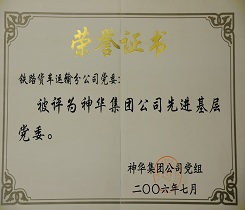 荣誉证书
铁路货车运输分公司党委：
被评为神华集团公司先进基层
党委。
神华集团公司党组
二〇〇六年七月